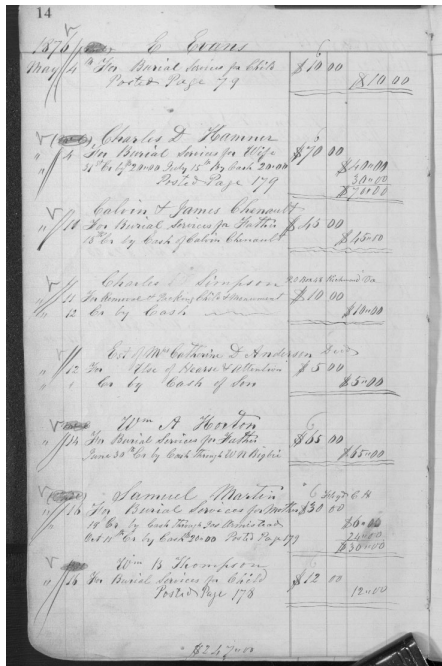 14
1876 E Evans
May 4th For Burial Services for Child $10 00
Posted Page 79 $10 00
Charles D Hamner
" 4 For Burial Services for Wife $70 00
20=00 July 15th By Cash 20=00 $40=00
Posted Page 179 30=00
$70=00
Calvin & James Chenault
" 10 For Burial Services for Father $45 00
15th Cr by Cash of Calvin Chenault $45=00
Charles Simpson Richmond Va
" 11 For Removal & Child $10 00
" 12 Cr by Cash $10=00
Est of Mrs Catherine D Anderson Decd
" 12 For Use of Hearse & Attention $5 00
" " Cr by Cash of Son $5=00
Wm A Horton
" 14 For Burial Services for Father $65 00
June 30th Cr by Cash through W N $65=00
Samuel Martin
" 16 For Burial Services for Mother $30 00
18 Cr by Cash through Jas Armistead $6=00
Oct 11th Cr by Cash 20=00 Posted Page 179 24=00
$30=00
Wm B Thompson
" 16 For Burial Services for Child $12 00
Posted Page 178 12=00
$247=00